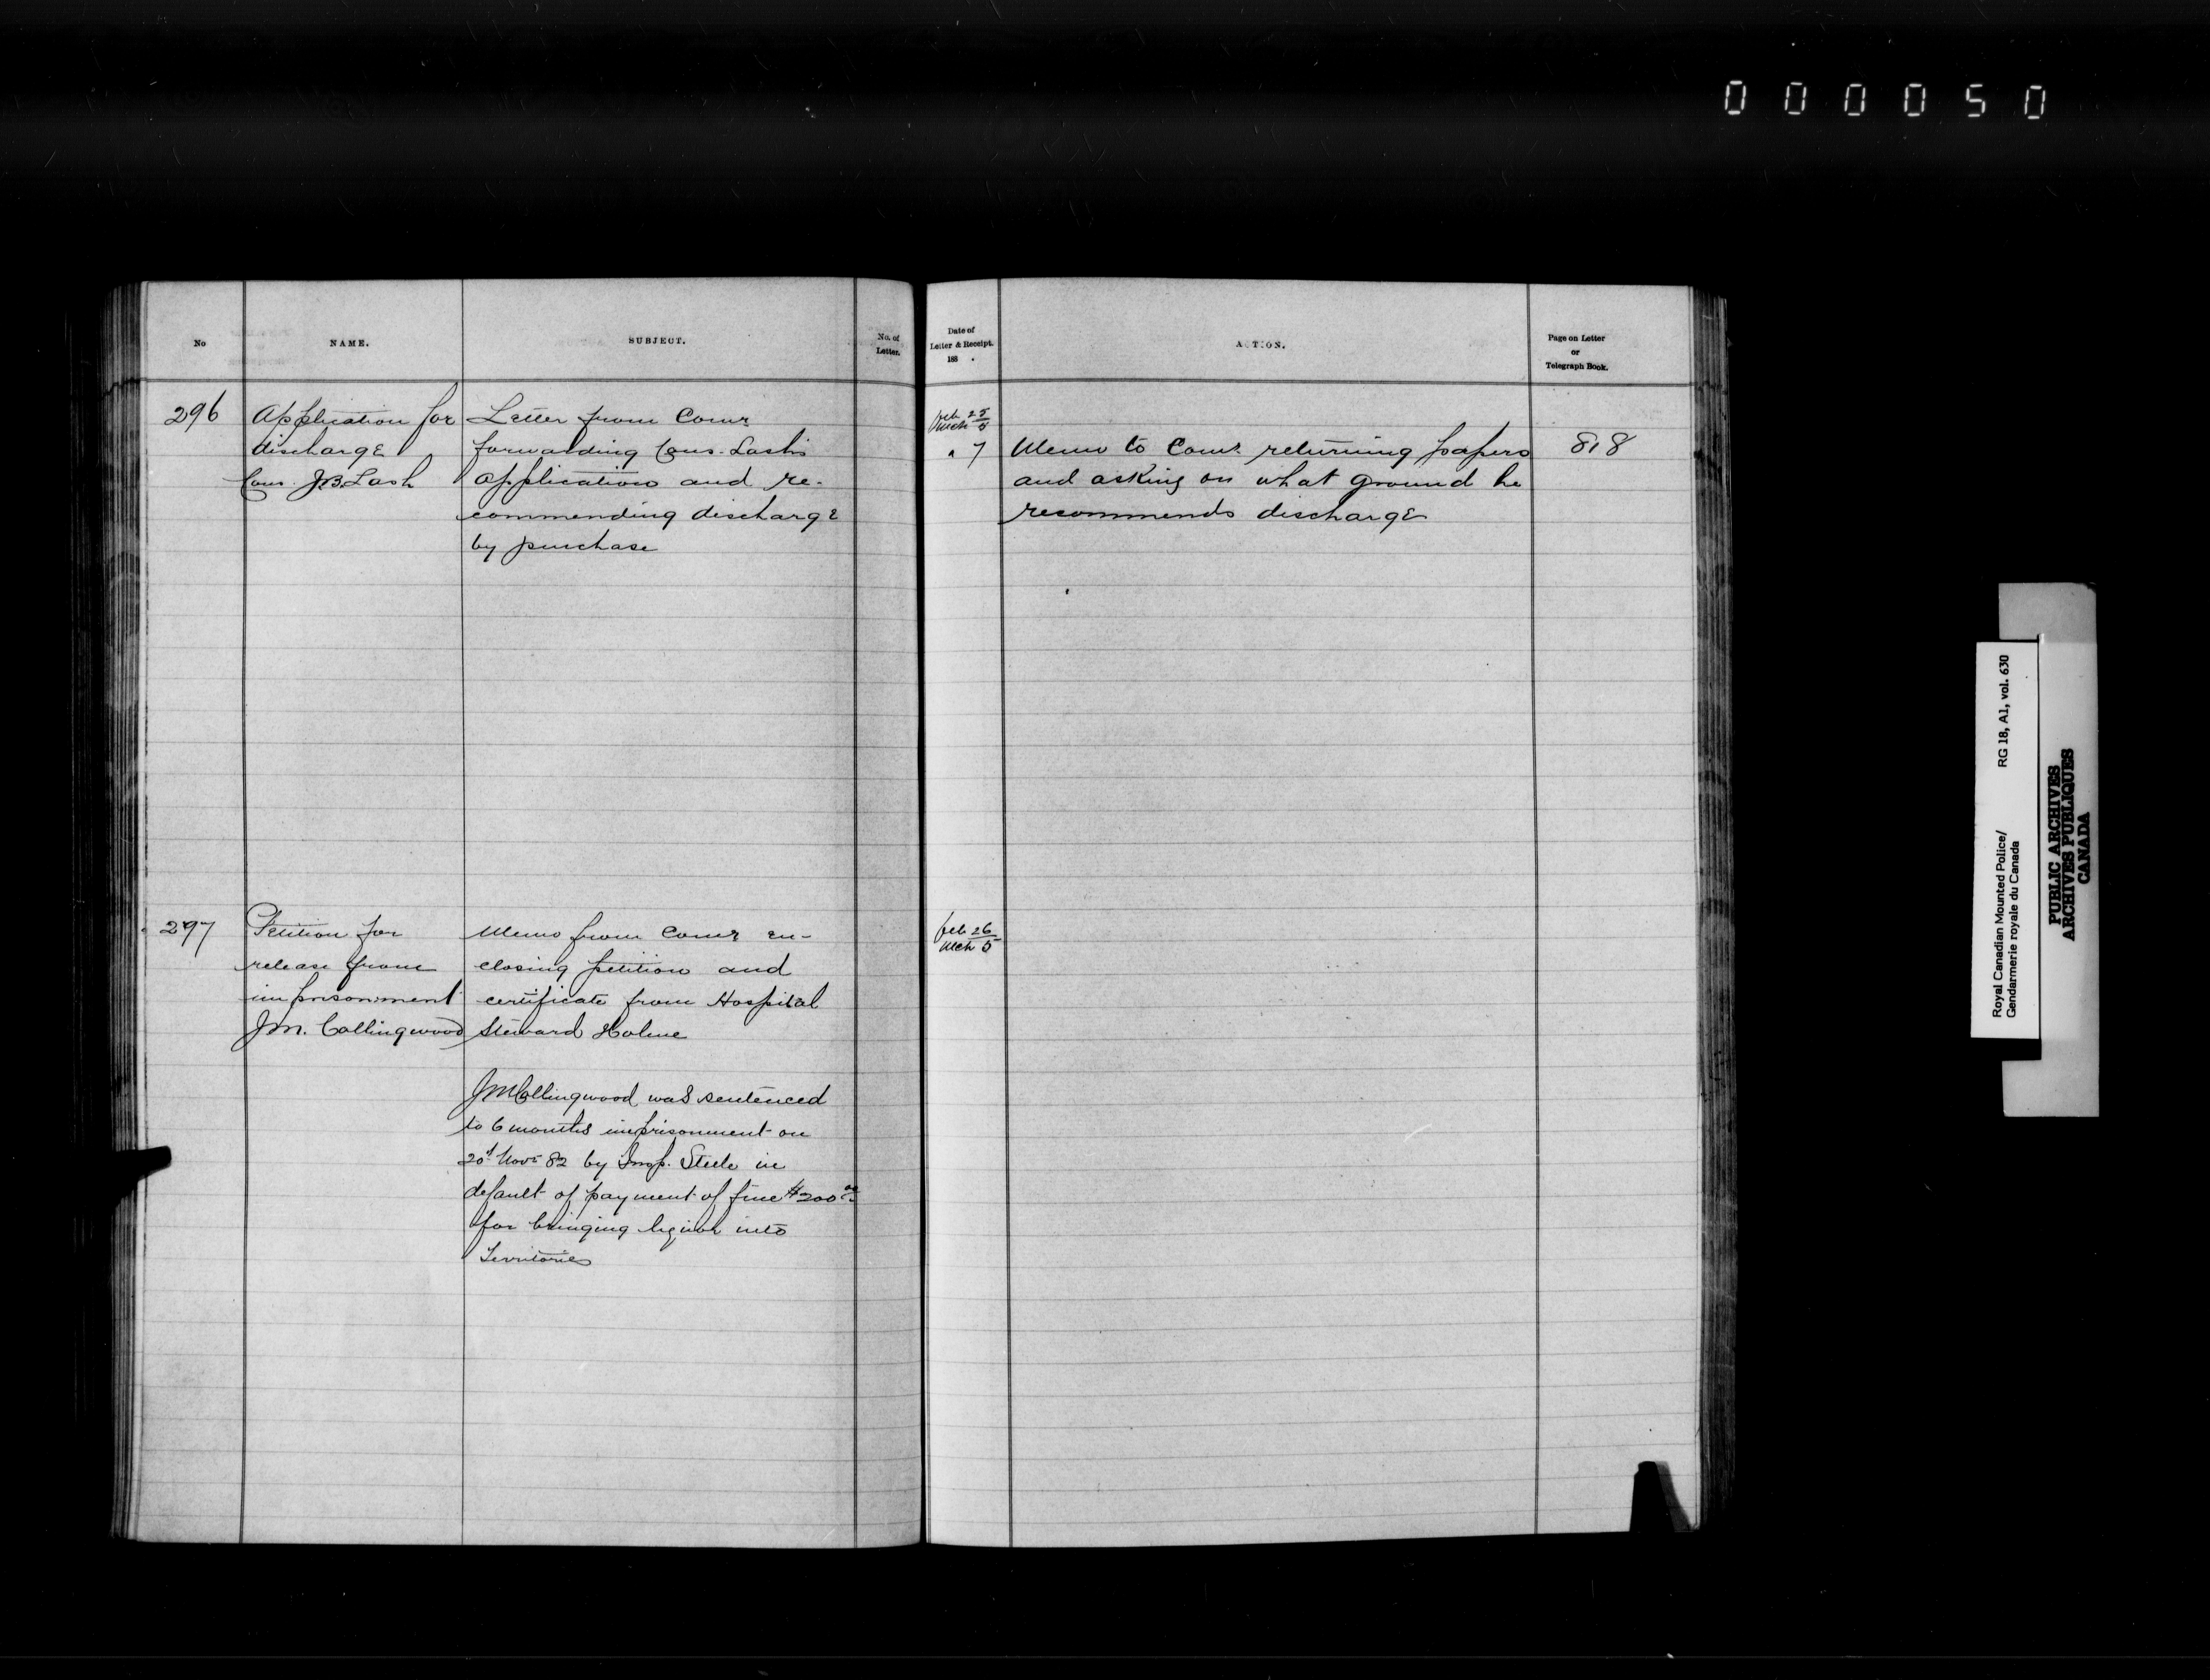 000050
No
NAME.
SUBJECT.
No. of
Letter.
Date of
Letter & Receipt.
188 .
ACTION.
Page on Letter
or
Telegraph Book.
296
Application for
discharge
Cons. J.B. Lash
Letter from Comr
forwarding Cons. Lash's
application and re-
commending discharge
by purchase
Feb 25
Mch 5
" 7
Memo to Comr. returning papers
and asking on what ground he
recommends discharge
818
297
Petition for
release from
imprisonment
J.M. Collingwood
Memo from Comr en-
closing petition and
certificate from Hospital
Steward Holme
J M Collingwood was sentenced
to 6 months imprisonment on
20t Novr 82 by Insp. Steele in
default of payment of fine $200.00
for bringing liquor into
Territories
Feb 26
Mch 5
Royal Canadian Mounted Police/
Gendarmerie royale du Canada
RG 18, A1, vol. 630
PUBLIC ARCHIVES
ARCHIVES PUBLIQUES
CANADA